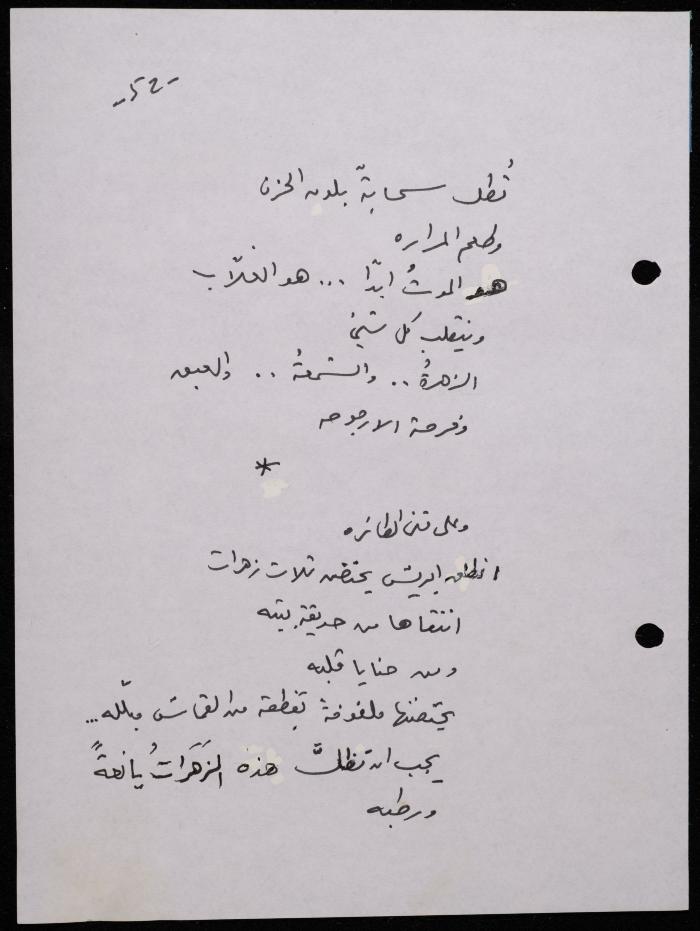 -٥٢-
تُطل سحابةٌ بلون الحزن
وطعم المراره
هو الموتُ ابدًا ... هو الغلّاب
وينقلب كل شيئ
الزهرةُ .. والشمعةُ .. والعبق
وفرحة الارجوحه
*
وعلى متن الطائره
ابريتس يحتضن ثلاث زهرات
انتقاها من حديقة بيته
ومن حنايا قلبه
يحتضنها ملفوفة بقطعة من القماش مبلّله...
يجب ان تظلَّ هذه الزَهَراتُ يانعةً
ورطبه